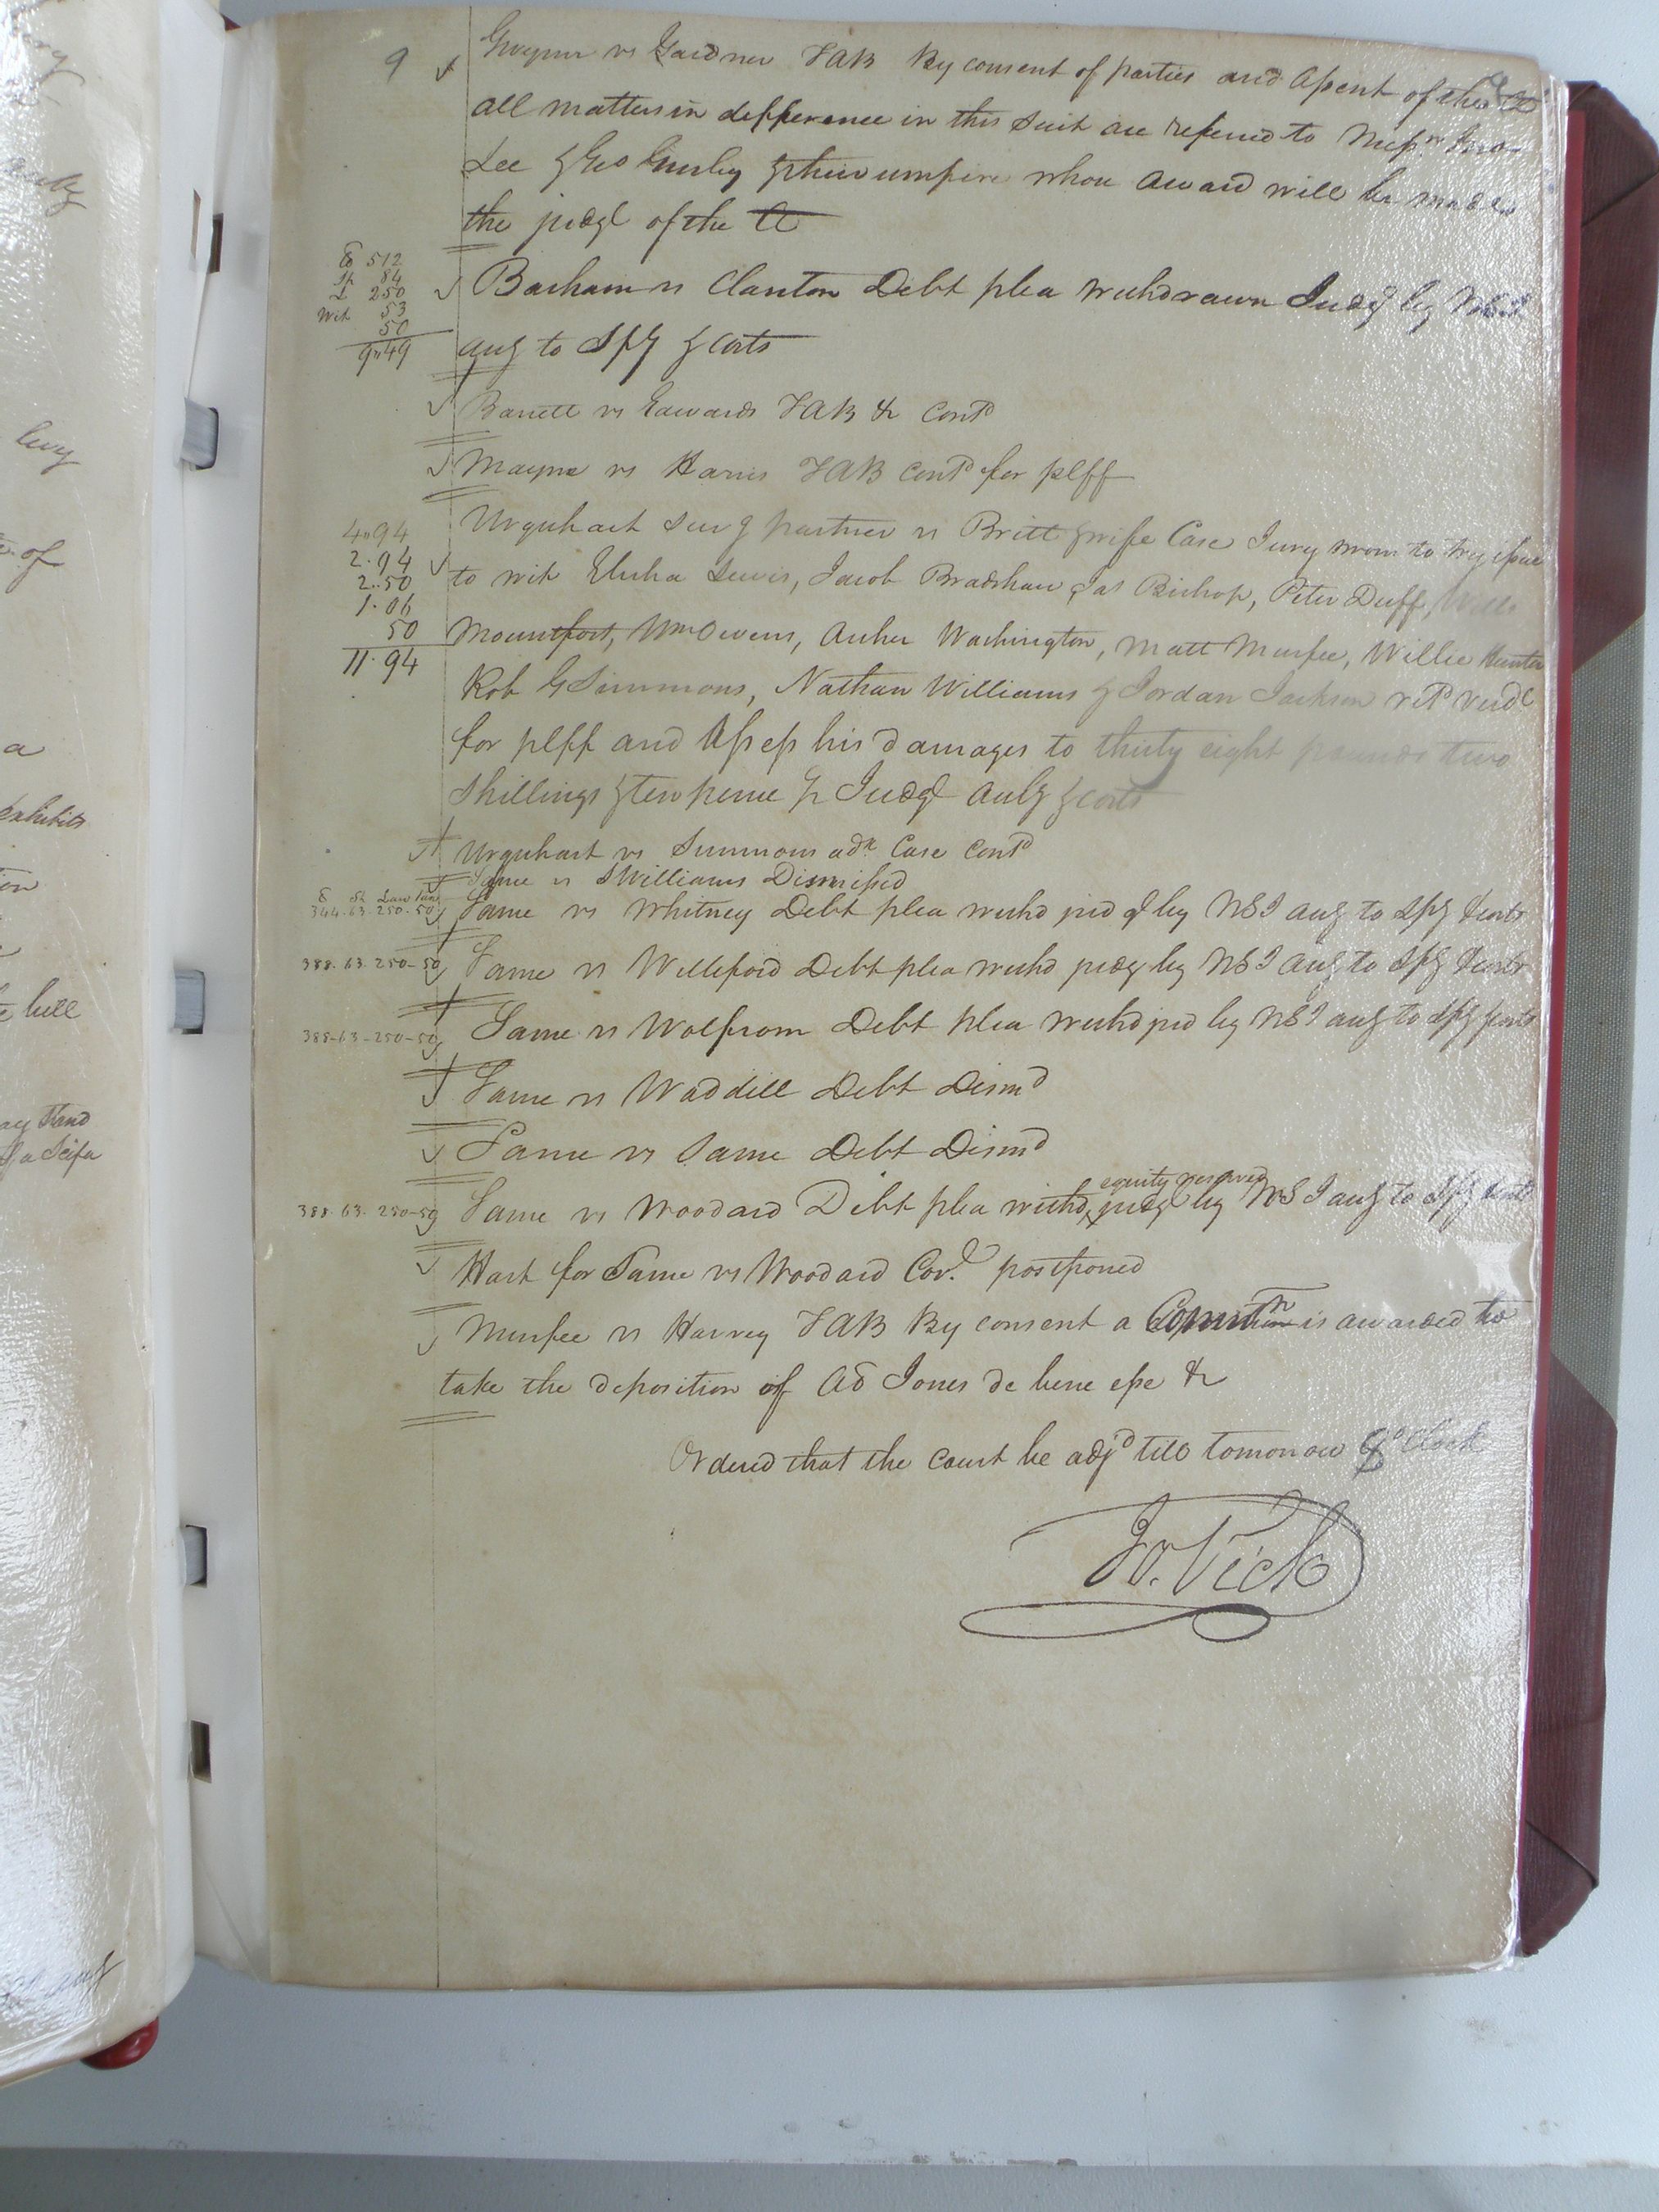 9
Gwynn vs Gardner TAB By consent of parties and Assent of the Ct
all matters in defference in this Suit are referred to Messrs Jno
Lee & Geo Gurley & their umpire whose award will be made
the judgt of the Ct
C 512
Sh 84
L 250
Wit 53
50
9"49
Barham vs Clanton Debt plea Withdrawn Judgt by
aug to Spy & Costs
Barrett vs Edwards TAB &c Contd
Mayne vs Harris TAB Contd for plff
4"94
2.94
2.50
1.06
50
11.94
Urquhart Surg partner vs Britt & wife Case Jury sworn to try issue
to wit Elisha Lewis, Jacob Bradshaw, Jas Bishop, Peter Duff,
Mountfort, Wm Owens, Archer Washington, Matt Murfee, Willie Hunter
Rob G Simmons, Nathan Williams & Jordan Jackson retd verdt
for plff and Assess his damages to thirty eight pounds two
Shillings & ten pence & Judgt aulg & costs
Urquhart vs Simmons adr Case Contd
Same vs S Williams Dismissed
C Sh Law Tax
344.63.250.50
Same vs Whitney Debt plea withd judgt by NSI aug to Spy & costs
388.63.250-50
Same vs Williford Debt plea withd judgt by NSI aug to Spy & costs
388-63-250-50
Same vs Wolfrom Debt plea withd jud by NSI aug to Spy & costs
Same vs Waddill Debt Dismd
Same vs Same Debt Dismd
equity reserved
388.63.250-50
Same vs Woodard Debt plea withd, judgt by NSI aug to Spy & costs
Hart for Same vs Woodard Cov. postponed
Murfee vs Harvey TAB By consent a Comitn is awarded to
take the deposition of AD Jones de bene esse &c
Ordered that the Court be adjd till tomorrow 9 oClock
Jo. Vick